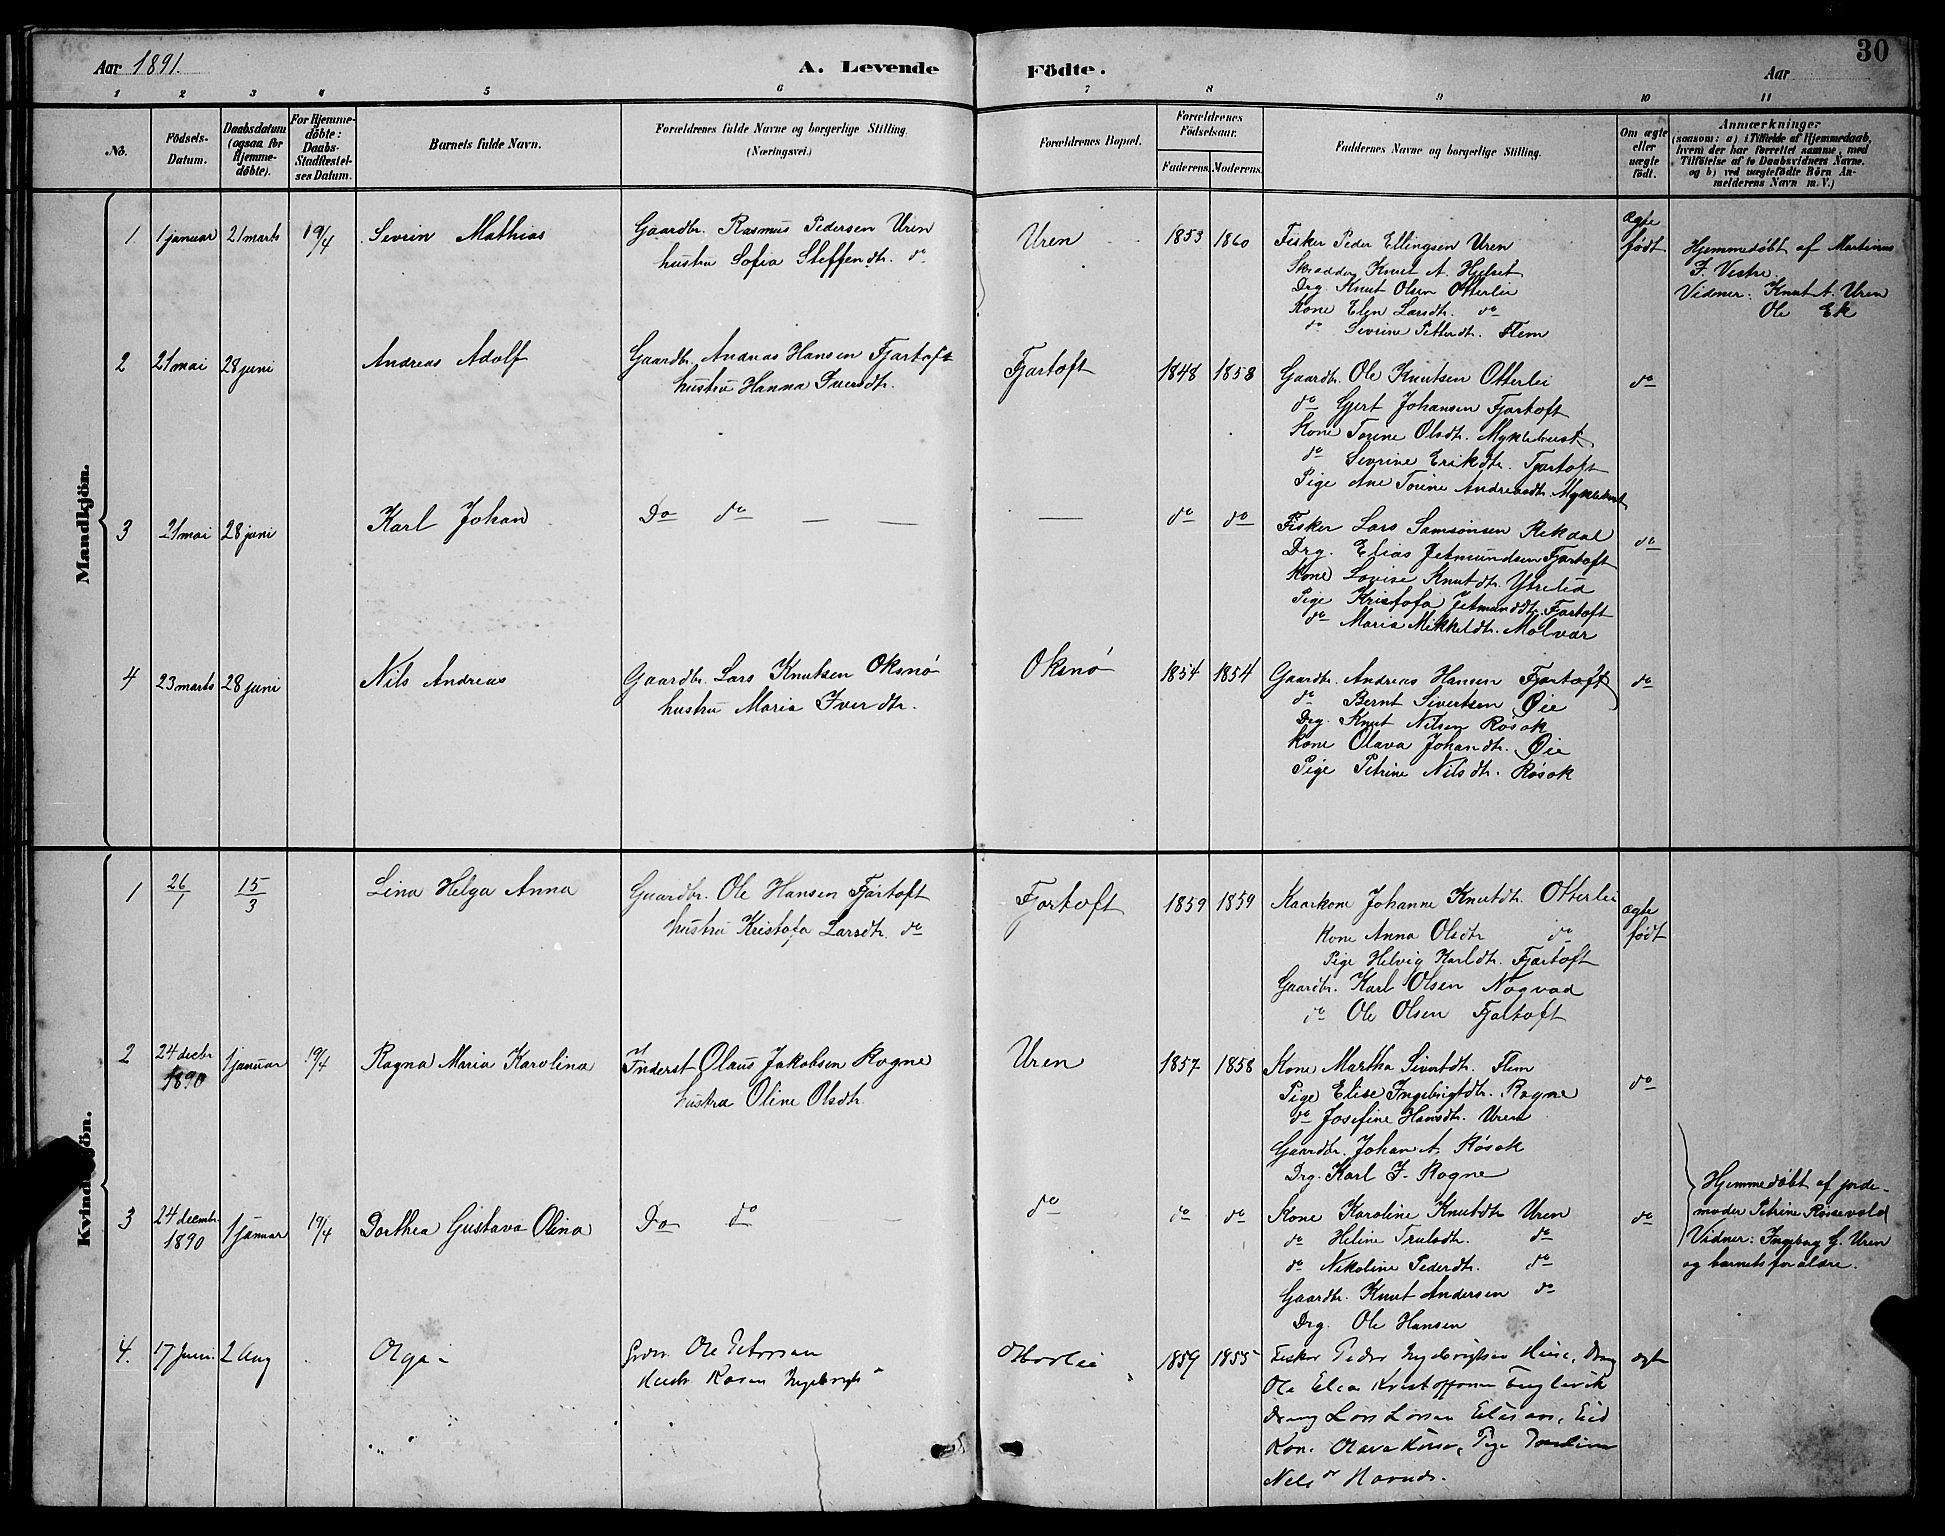 Aar 1891.
A. Levende
Födte.
Aar
30
1 2 3 4 5 6 7 8 9 10 11
No.
Födsels-Datum.
Daabsdatum (ogsaa for Hjemme-döbte).
For Hjemme-döbte: Daabs-Stadfæstel-ses Datum.
Barnets fulde Navn.
Forældrenes fulde Navne og borgerlige Stilling.
(Næringsvei.)
Forældrenes Bopæl.
Forældrenes Födselsaar.
Faderens. Moderens.
Faddernes Navne og borgerlige Stilling.
Om ægte eller uægte födt.
Anmærkninger
(saasom: a) i Tilfælde af Hjemmedaab,
hvem der har forrettet samme, med
Tilföielse af to Daabsvidners Navne.
og b) ved uægtefödte Börn An-
melderens Navn m. V.)
Mandkjön.
1 1 januar 21 marts 19/4 Sevrin Mathias
Gaardbr. Rasmus Pedersen Uren
hustru Sofia Steffendtr. do
Uren 1853 1860
Fisker Peder Ellingsen Uren
Skrædder Knut A. Hjelset
Drg. Knut Olsen Otterlei
Kone Elen Larsdtr. do
do Sevrine Petterdt. Flem
Ægte født
Hjemmedøbt af Martinus
J. Vestre.
Vidner: Knut A. Uren
Ole Ek
2 21 mai 28 juni Andreas Adolf
Gaardbr. Andreas Hansen Fjørtoft
hustru Hanna Iversdtr.
Fjørtoft 1848 1858
Gaardbr. Ole Knutsen Otterlei
do Gjert Johansen Fjørtoft
Kone Torine Olsdtr. Myklebust
do Sevrine Erikdtr. Fjørtoft
Pige Ane Torine Andreasdtr. Myklebust
do
3 21 mai 28 juni Karl Johan
Do do — —
— do do
Fisker Lars Samsonsen Rekdal
Drg. Elias Jetmundsen Fjørtoft
Kone Lovise Knutdtr. Ytrelid
Pige Kristofa Jetmunddtr. Fjørtoft
do Maria Mikkeldtr. Molvær
do
4 23 marts 28 juni Nils Andreas
Gaardbr. Lars Knutsen Oksnø
hustru Maria Iverdtr.
Oksnø 1854 1854
Gaardbr. Andreas Hansen Fjørtoft
do Bernt Sivertsen Øie
Drg. Knut Nilsen Røsok
Kone Olava Johandtr. Øie
Pige Petrine Nilsdtr. Røsok
do
Kvindekjön.
1 26/1 15/3 Lina Helga Anna
Gaardbr. Ole Hansen Fjørtoft
hustru Kristofa Larsdtr. do
Fjortoft 1859 1859
Kaarkone Johanne Knutdtr. Otterlei
Kone Anna Olsdtr do
Pige Helvig Karldtr. Fjørtoft
Gaardbr. Karl Olsen Nogvad
do Ole Olsen Fjørtoft
Ægte født
2 24 decbr 1890 1 januar 19/4 Ragna Maria Karolina
Inderst Olaus Jakobsen Rogne
hustru Oline Olsdtr.
Uren 1857 1858
Kone Martha Sivertdtr. Flem
Pige Elise Ingebrigtdtr. Rogne
do Josefine Hansdtr. Uren
Gaardbr. Johan A. Røsok
Drg. Karl J. Rogne
do
3 24 decembr 1890 1 januar 19/4 Dorthea Gustava Olina
Do do —
do do do
Kone Karoline Knutdtr Uren
do Heline Trulsdtr. do
do Nikoline Pederdtr. do
Gaardbr. Knut Andersen do
Drg. Ole Hansen
do
Hjemmedøbt af jorde-
moder Petrine Røsevold
Vidner: Ingeborg G. Uren
og barnets forældre.
4. 17 Juni. 2 Aug Olga
Ole Petersen
Hustr Karen Ingebrigts
1859 1855
Fisker Peder Ingebrigtsen Huse, Dreng
Ole Elias Kristoffersen
Dreng Lars Larsen Eid
Kone Olava Pige
Nels dr
ægt